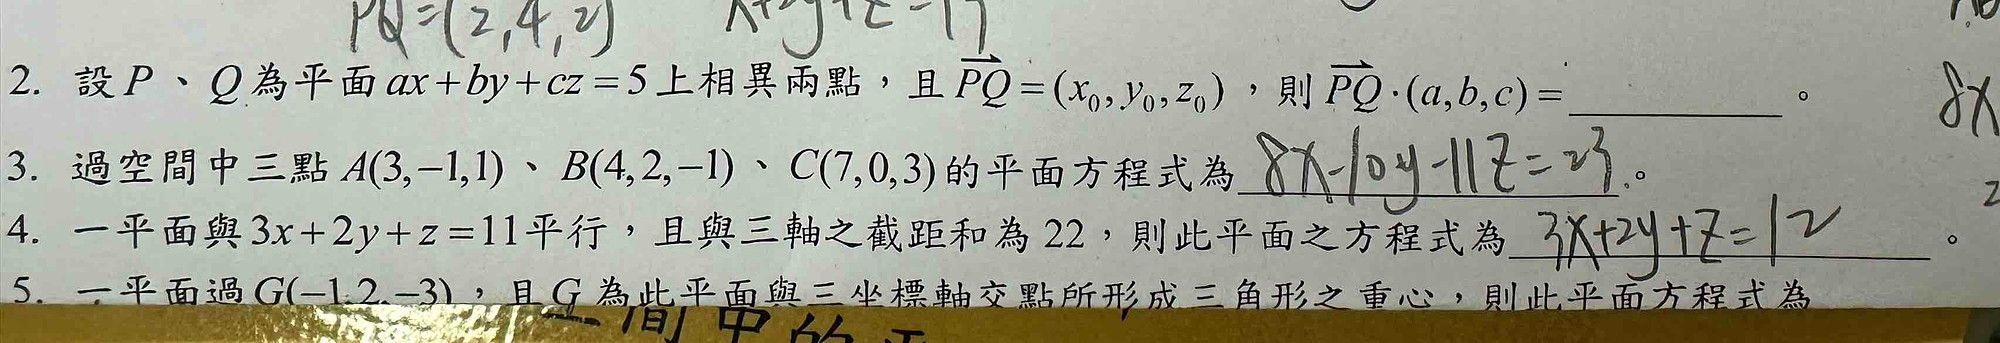 PQ=(2,4,2) x+2y+z=17
2. 設P、Q為平面ax+by+cz=5上相異兩點，且PQ=(x₀,y₀,z₀)，則PQ·(a,b,c)=________。
8x
3. 過空間中三點A(3,-1,1)、B(4,2,-1)、C(7,0,3)的平面方程式為8x-10y-11z=23。
2
4. 一平面與3x+2y+z=11平行，且與三軸之截距和為22，則此平面之方程式為3x+2y+z=12。
5. 一平面過G(-1,2,-3)，且G為此平面與三坐標軸交點所形成三角形之重心，則此平面方程式為
間中的平